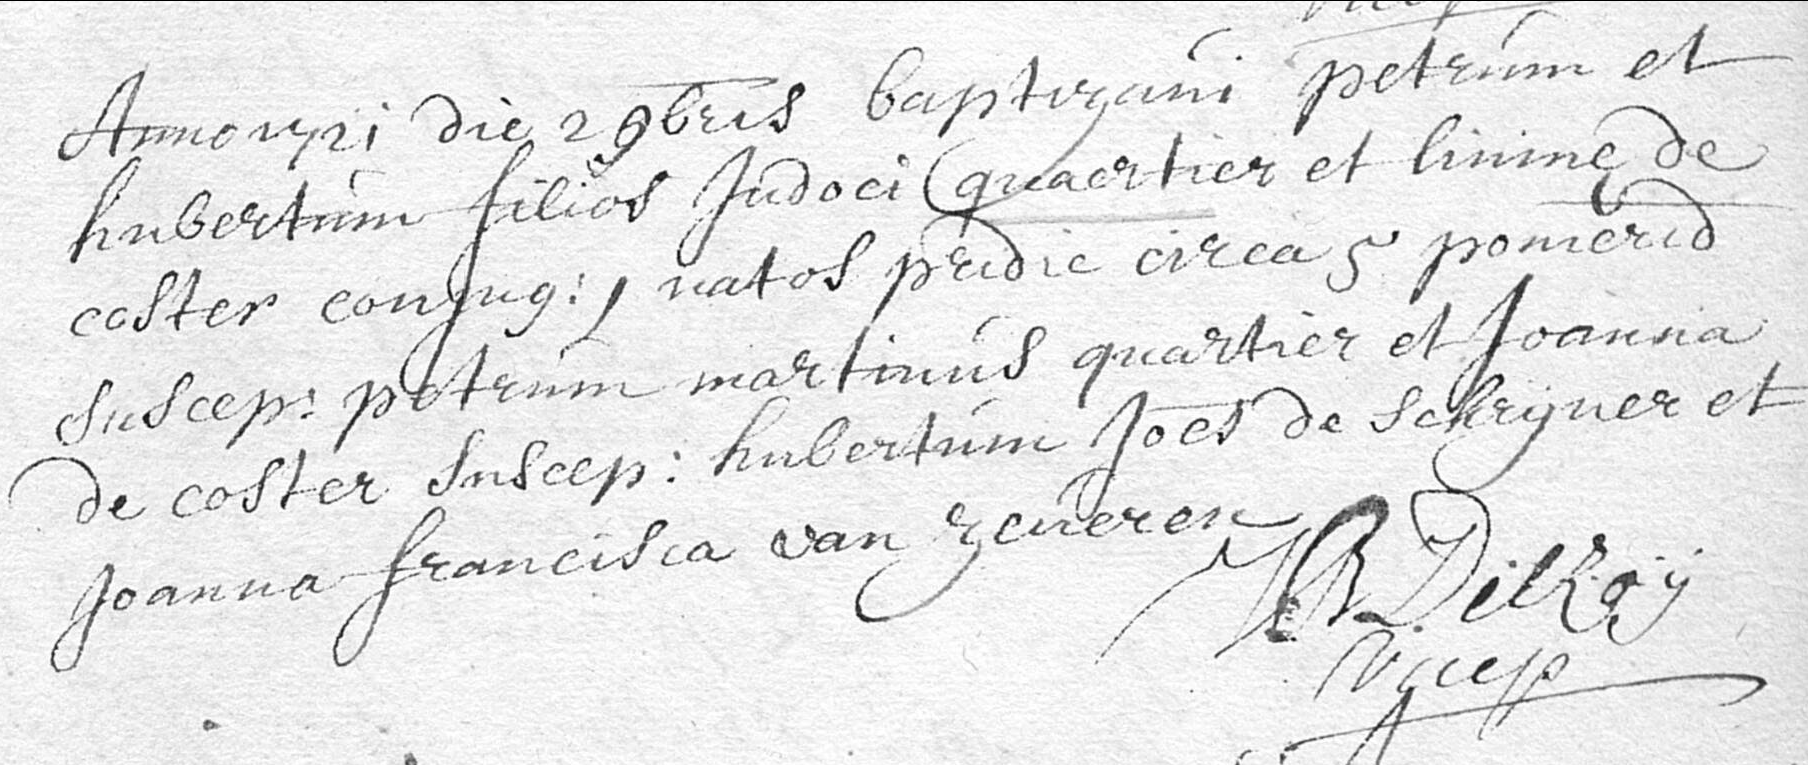 Anno 1721 die 2 9bris baptizavi petrum et
hubertum filios Judoci quaertier et livinę de
coster conjug: natos pridie circa 5 pomerid
suscep: petrum martinus quartier et Joanna
de coster suscep: hubertum Joës de schryver et
Joanna francisca van zeveren